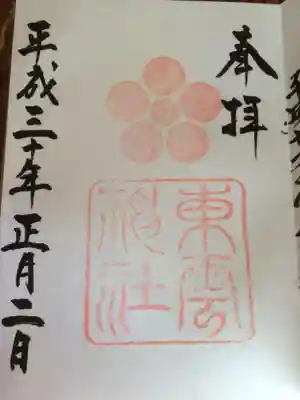 奉拝
東雲
神社
平成三十年正月二日